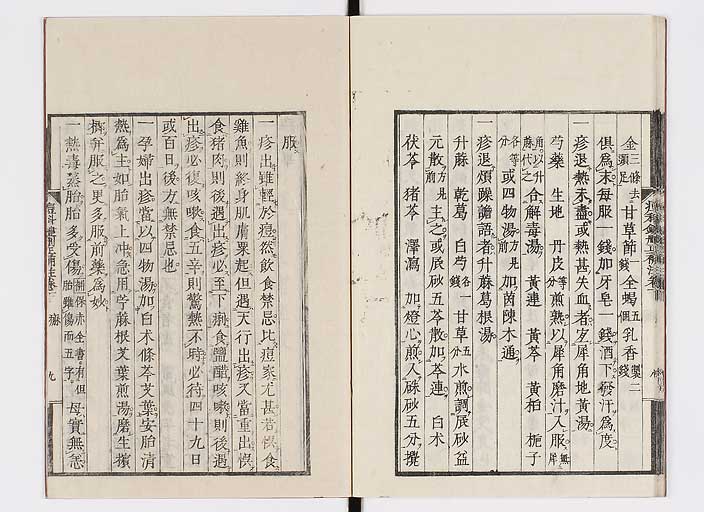 金三條去頭足 甘草節一錢 全蝎五個 乳香製二錢
俱爲末每服一錢加牙皂一錢酒下發汗爲度
一疹退熱未盡或熱甚失血者宜犀角地黃湯
芍藥 生地 丹皮等分 煎熟以犀角磨汁入服無犀
角以升麻代之 合解毒湯 黃連 黃芩 黃栢 梔子
各等分 或四物湯方見前加茵陳木通
一疹退煩躁譫語者升麻葛根湯
升麻 乾葛 白芍各一錢 甘草五分 水煎調辰砂益
元散方見前主之或辰砂五苓散加芩連 白术
茯苓 猪苓 澤瀉 加燈心煎入硃砂五分攪
服
一疹出雖輕於痘然飲食禁忌比痘家尤甚若悞食
雞魚則終身肌膚粟起但遇天行出疹又當重出悞
食猪肉則後遇出疹必至下痢食鹽醋咳嗽則後遇
出疹必復咳嗽食五辛則驚熱不時必待四十九日
或百日後方無禁忌也
一孕婦出疹當以四物湯加白术條芩艾葉安胎清
熱爲主如胎氣上冲急用苧蔴根艾葉煎湯磨生檳
榔并服之更多服前藥爲妙
一熱毒蒸胎胎多受傷 但 胎雖傷而 母實無恙
痘科鍵刪正補註卷
疹
九